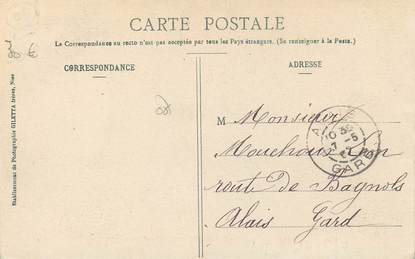 CARTE POSTALE
La Correspondance au recto n'est pas acceptée par tous les Pays étrangers. (Se renseigner à la Poste.)
30 €
CORRESPONDANCE
ADRESSE
Etablissements de Photographie GILETTA frères, Nice
M Monsieur
Léon
route de Bagnols
Alais Gard
GARD